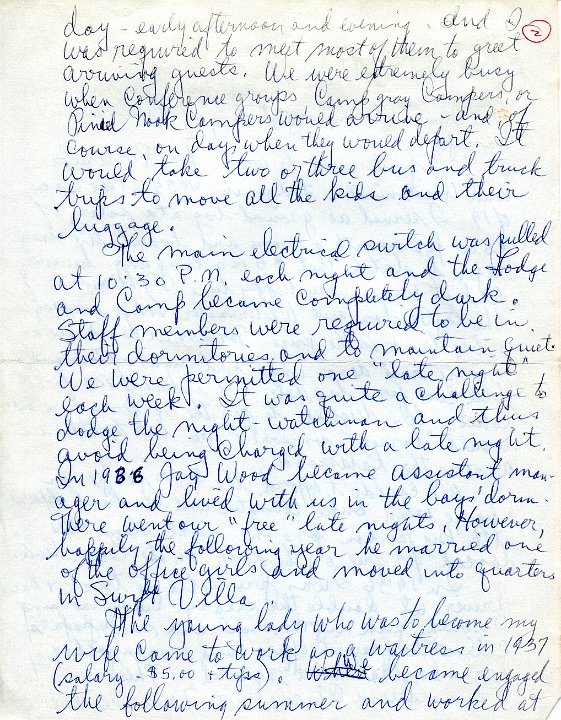 day - early afternoon and evening. And I
2
was required to meet most of them to greet
arriving guests. We were extremely busy
when Conference groups, Camp gray Campers, or
Pine Nook Campers would arrive - and of
course, on days when they would depart. It
would take two or three bus and truck
trips to move all the kids and their
luggage.
The main electrical switch was pulled
at 10:30 P.M. each night and the Lodge
and Camp became completely dark.
Staff members were required to be in
their dormitories and to maintain quiet.
We were permitted one "late night"
each week. It was quite a challenge to
dodge the night-watchman and thus
avoid being charged with a late night.
In 1936 Jay Wood became assistant man-
ager and lived with us in the boys' dorm.
There went our "free" late nights. However,
happily the following year he married one
of the office girls and moved into quarters
in Swift Villa.
The young lady who was to become my
wife came to work as a waitress in 1937
(salary - $5.00 + tips). We became engaged
the following summer and worked at